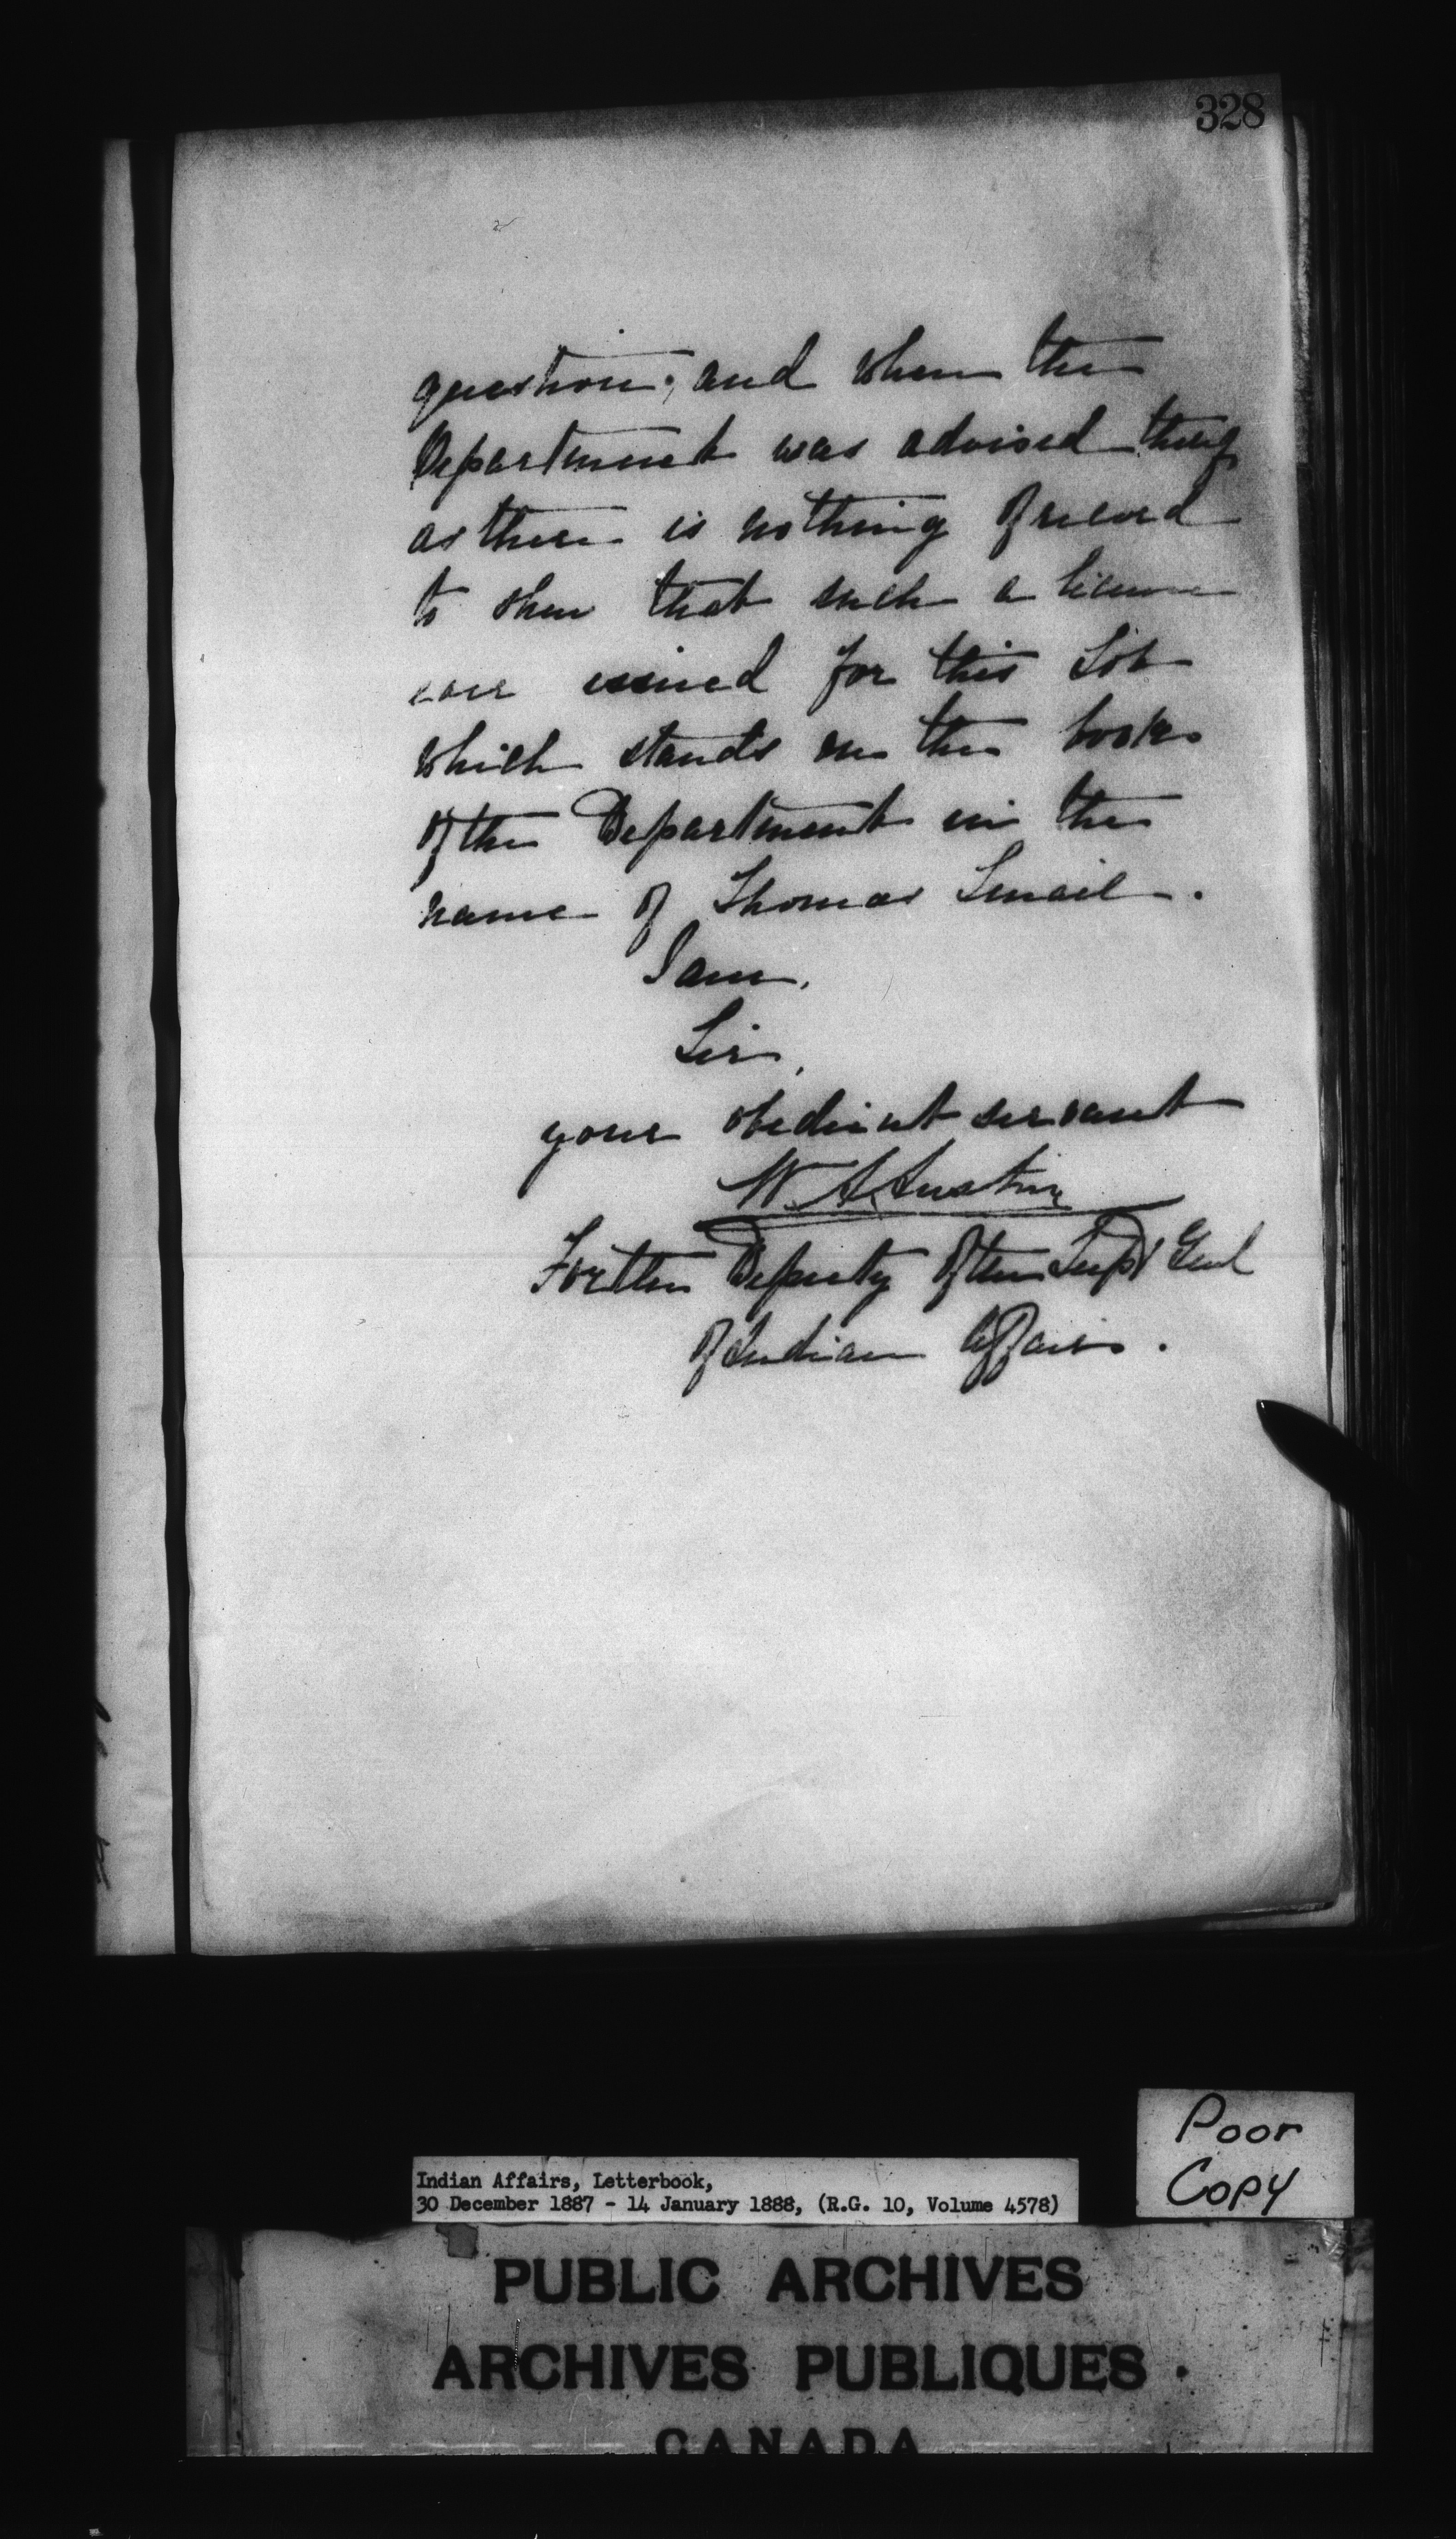 328
question; and when the
Department was advised thereof
as there is nothing of record
to show that such a license
was issued for this Lot
which stands in the books
of the Department in the
name of Thomas Smail.
I am,
Sir,
your obedient servant
W. A. Austin
For the Deputy of the Supt Genl
of Indian Affairs.
Poor
Copy
Indian Affairs, Letterbook,
30 December 1887 - 14 January 1888, (R.G. 10, Volume 4578)
PUBLIC ARCHIVES
ARCHIVES PUBLIQUES
CANADA